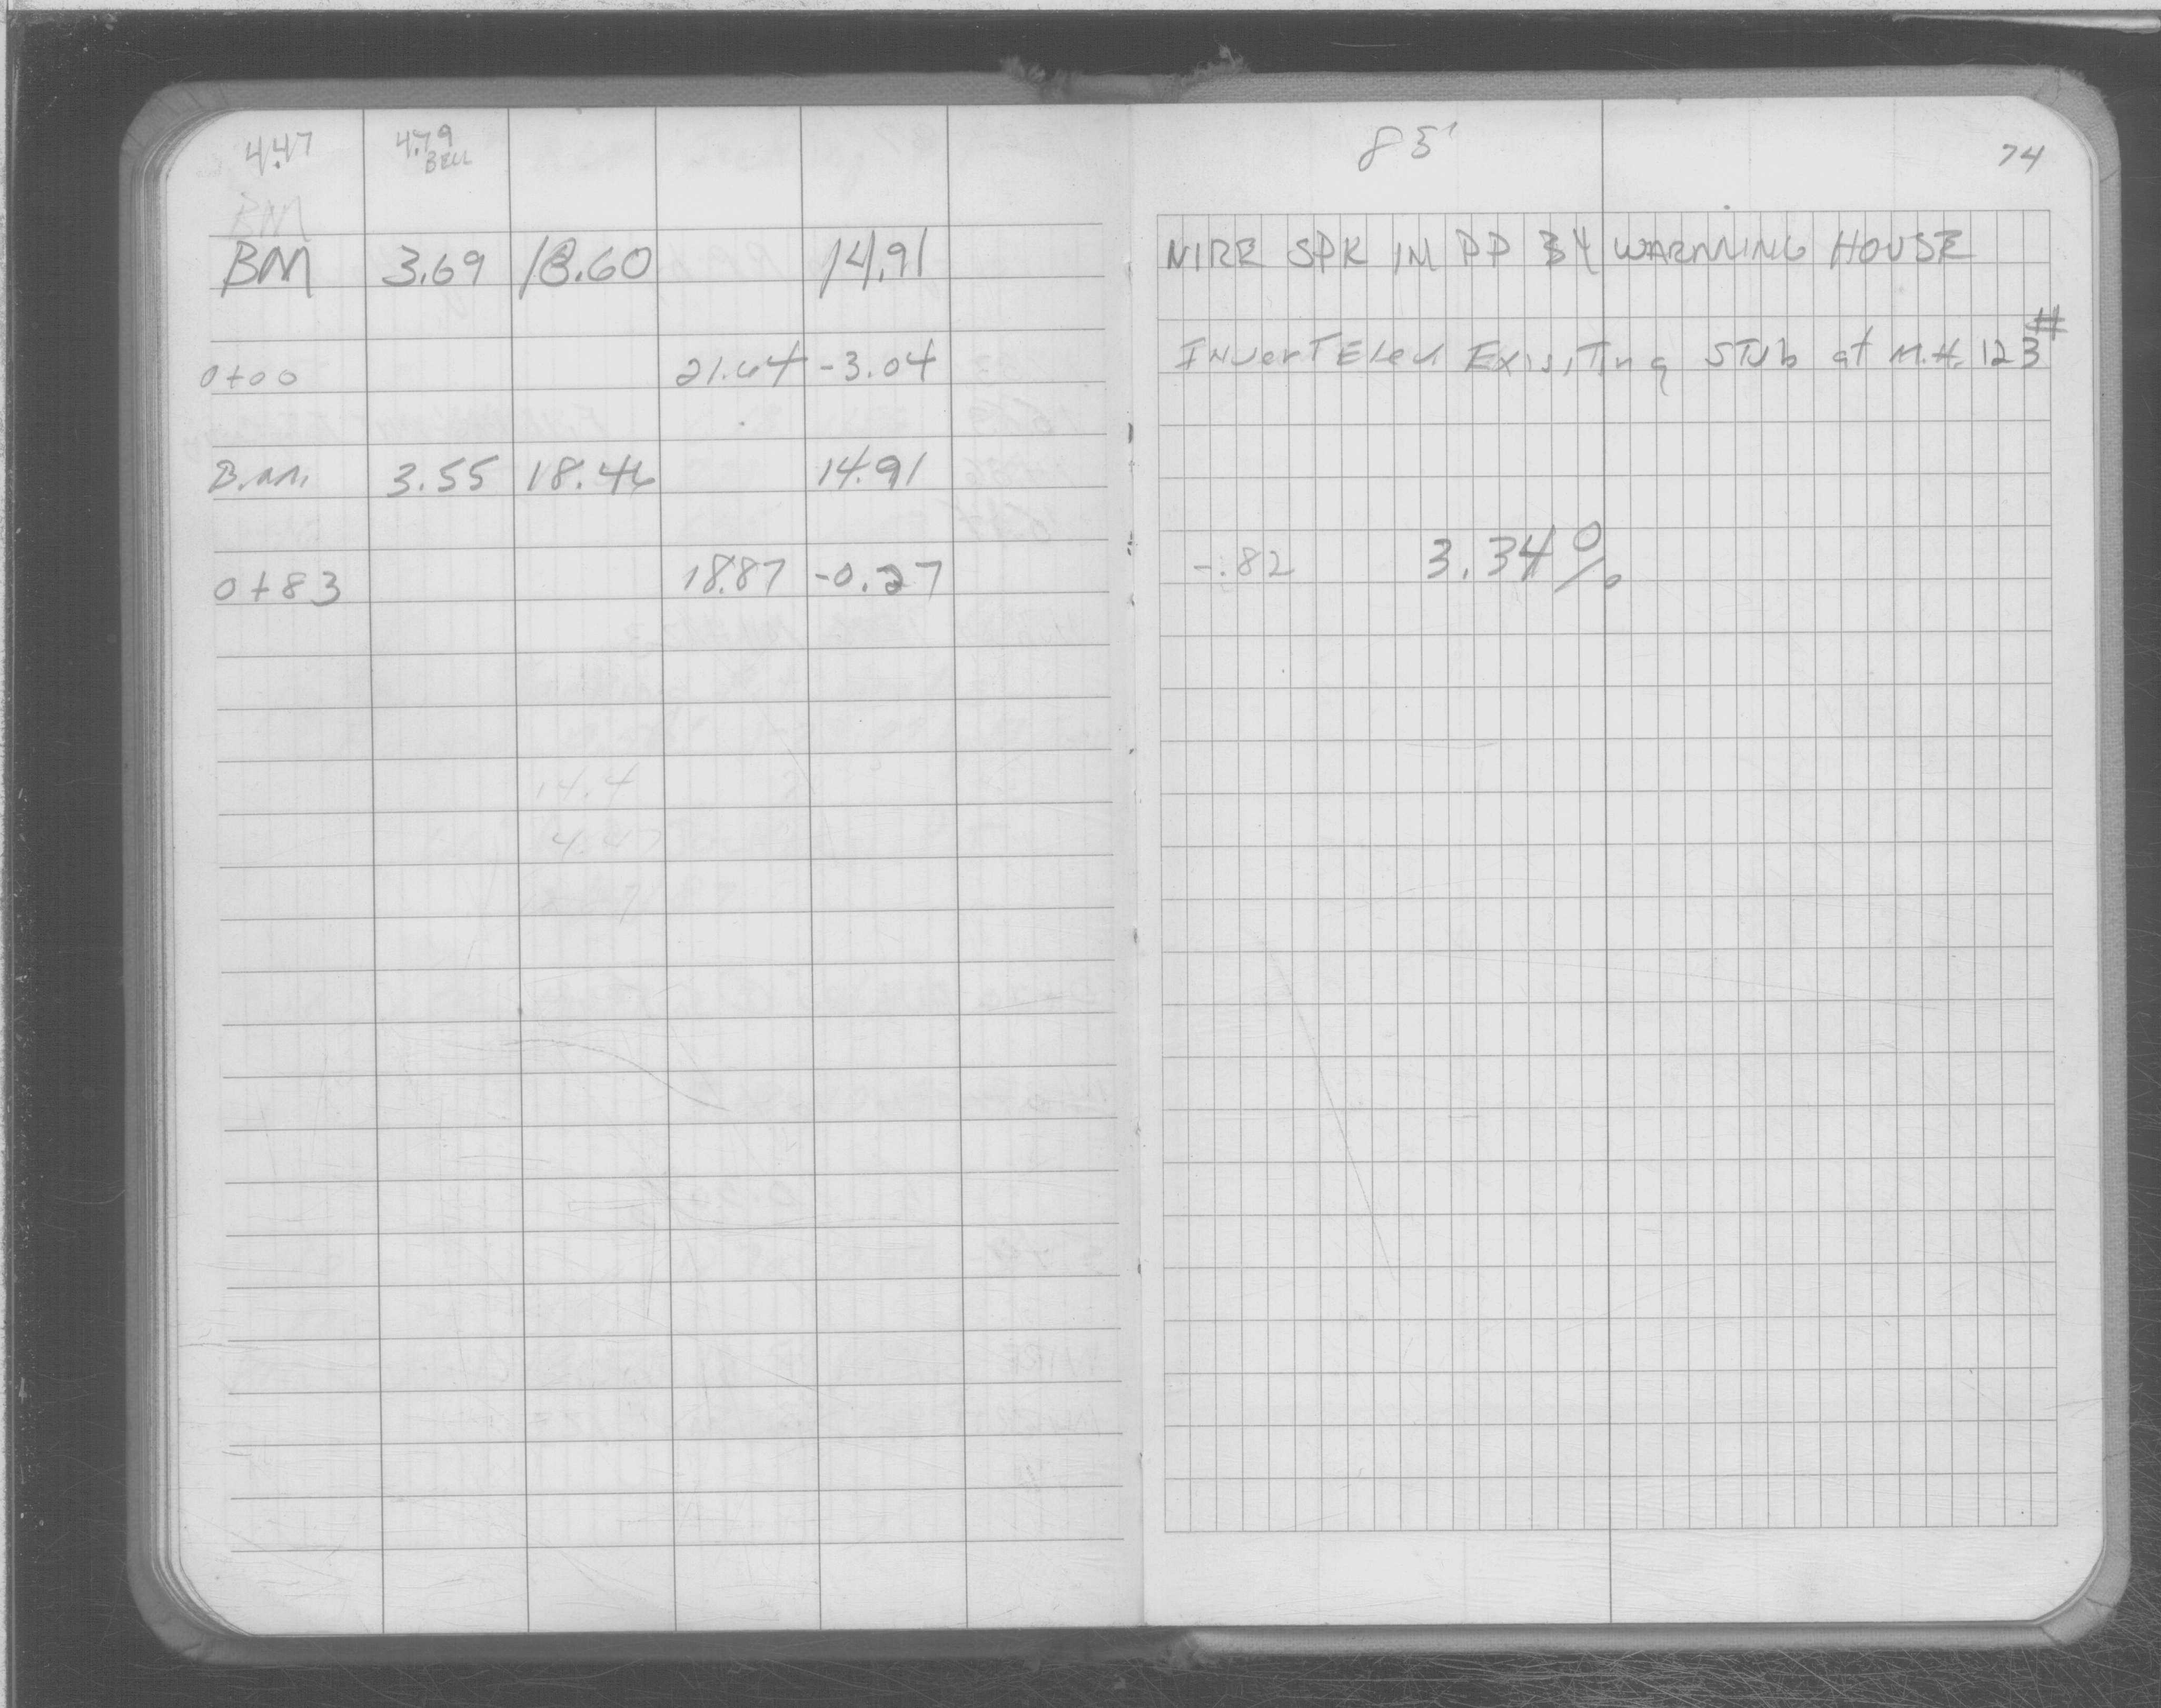 4.47 4.79 BELL
BM
BM 3.69 18.60 14.91
0+00 21.64 -3.04
B.M. 3.55 18.46 14.91
0+83 18.87 -0.27
14.4
4.47
85' 74
NIRE SPK IN PP BY WARMNING HOUSE
Invert Elev Existing Stub at M.H. 123#
-.82 3.34%